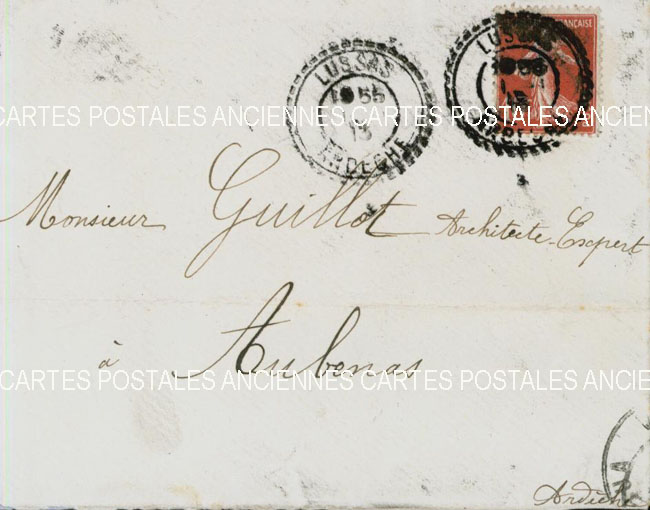 FRANÇAISE
LUSSAS
55
13
ARDECHE
LUSSAS
CARTES POSTALES ANCIENNES CARTES POSTALES ANCIEN
Monsieur Guillot Architecte-Expert
à Aubenas
CARTES POSTALES ANCIENNES CARTES POSTALES ANCIEN
Ardèche